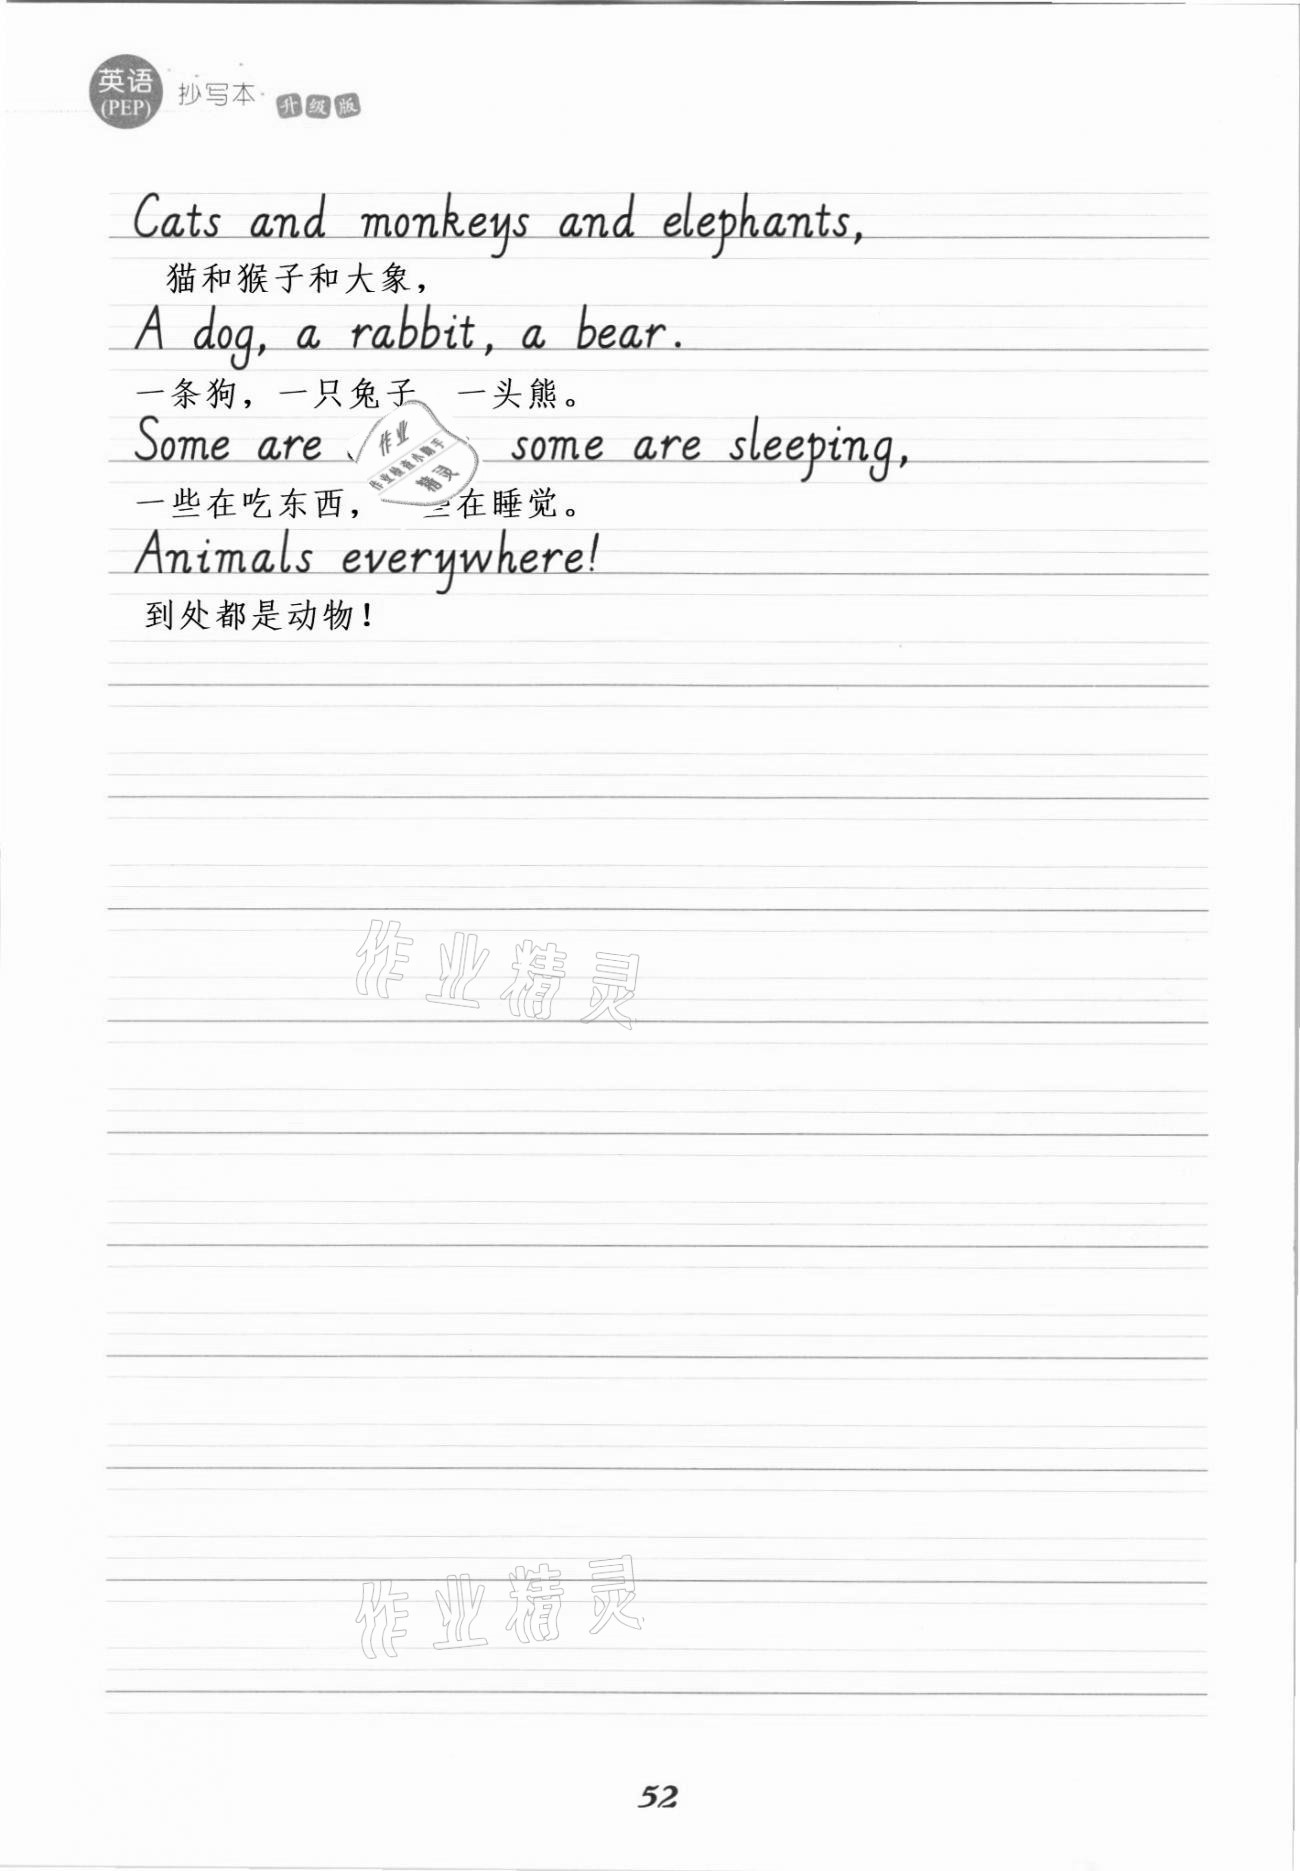 英语
(PEP)
抄写本
升级版
Cats and monkeys and elephants,
猫和猴子和大象，
A dog, a rabbit, a bear.
一条狗，一只兔子 一头熊。
Some are some are sleeping,
一些在吃东西， 些在睡觉。
Animals everywhere!
到处都是动物！
作业
作业检查小助手
精灵
作业精灵
作业精灵
52